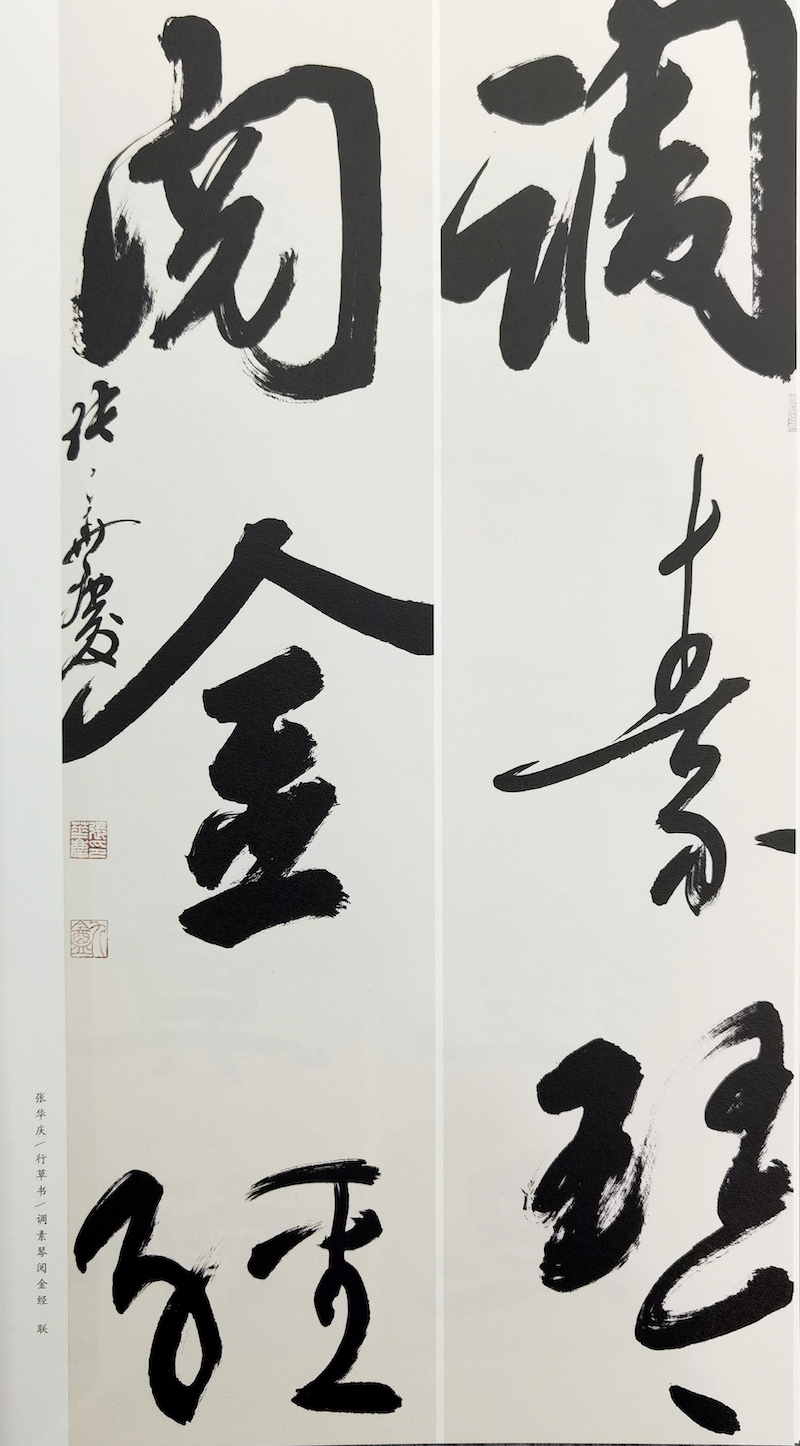 調素琴
閱金經
張華慶
張華慶印
张华庆／行草书／调素琴阅金经 联